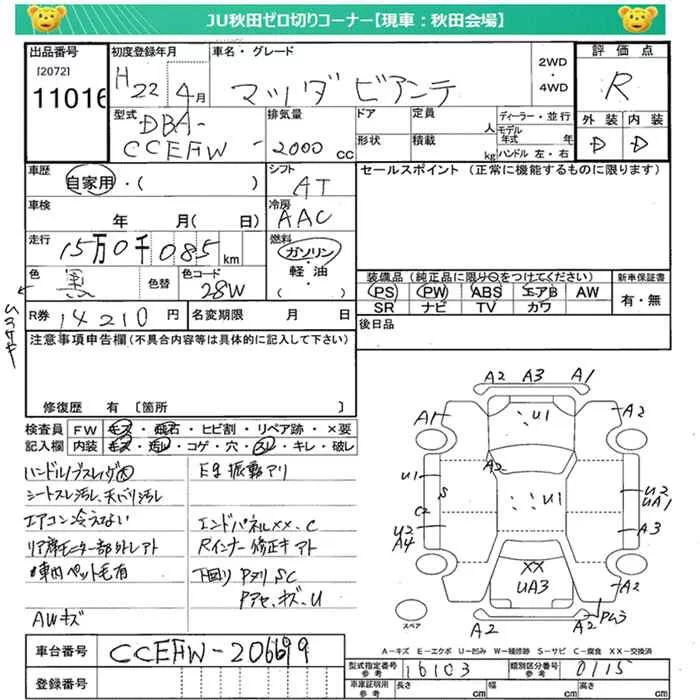 JU秋田ゼロ切りコーナー【現車:秋田会場】
出品番号
[2072]
11016
初度登録年月
H22 4月
車名・グレード
マツダ ビアンテ
2WD
・
4WD
評価点
R
外装 内装
D D
型式
DBA-
CCEFW
排気量
2000 cc
ドア
形状
定員 人
積載 kg
ディーラー・並行
モデル年式 年
ハンドル 左・右
車歴
自家用・( )
シフト
AT
車検
年 月( 日)
冷房
AAC
走行
15万0千085 km
燃料
ガソリン・
軽油・
( )
色
黒
色替
色コード
28W
R券 14210 円
名変期限 月 日
セールスポイント (正常に機能するものに限ります)
装備品(純正品に限り○をつけてください)
PS PW ABS エアB AW
SR ナビ TV カワ
新車保証書
有・無
後日品
注意事項申告欄(不具合内容等は具体的に記入して下さい)
修復歴 有 〔箇所 〕
検査員記入欄
FW キズ・飛石・ヒビ割・リペア跡・×要
内装 キズ・汚レ・コゲ・穴・スレ・キレ・破レ
シートスレ汚レ、天バリ汚レ
エアコン冷えない
リア席モニター部外レアト
車内ペット毛有
AWキズ
Eg振動アリ
エンドパネルXX、C
Rインナー修正キアト
下回りPヌリSC
A2 A3 A1
A1 U1 A2
A2
U1 U1 U2
S UA1
C2
U2 A3
A4
XX
UA3
A2
A2 A2
スペア
A-キズ E-エクボ U-凹み W-補修跡 S-サビ C-腐食 XX-交換済
車台番号
CCEFW-206699
登録番号
型式指定番号
参考
16103
類別区分番号
参考
0115
車庫証明用
参考
長さ cm 幅 cm 高さ cm